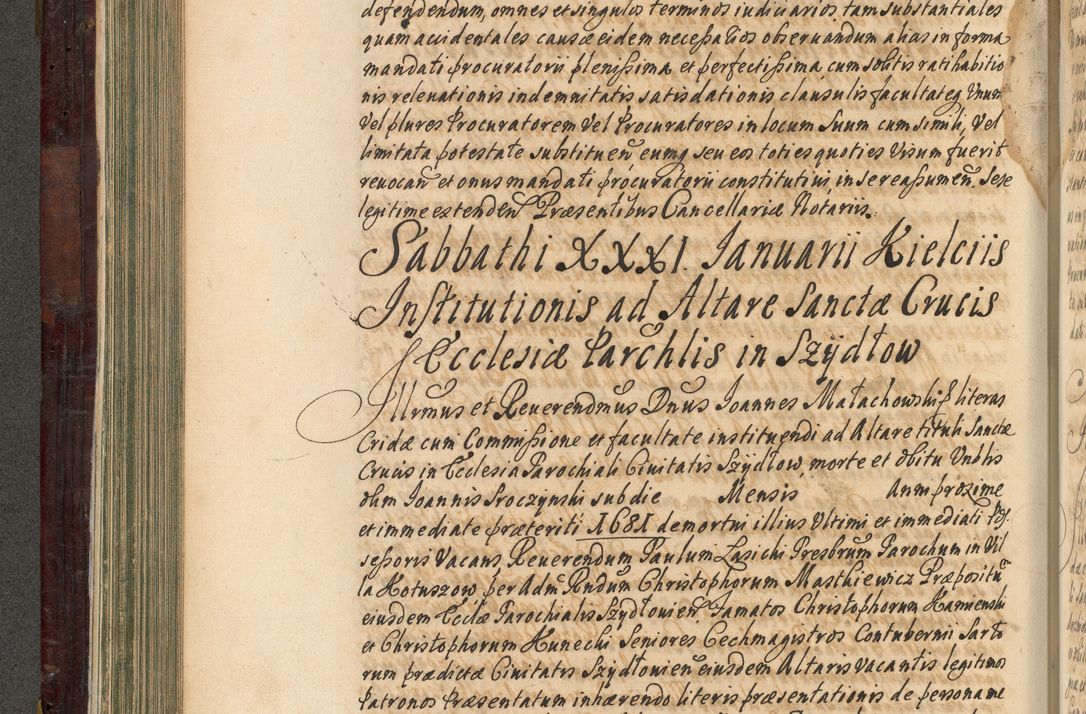 defendendum, omnes et singulos terminos iudiciarios tam substantiales
quam accidentales causæ eidem necessarios obseruandum alias in forma
mandati procuratorii plenissima et perfectissima, cum solitis ratihabitio
nis releuationis indemnitatis satisdationis clausulis facultateq Unum
Vel plures Procuratorem Vel Procuratores in locum Suum cum simili, Vel
limitata potestate substituen̄ eumq seu eos toties quoties Visum fuerit
reuocan̄ et onus mandati procuratorii constitutiui in se reassumen̄. Sese
legitime extenden̄ Præsentibus Cancellariæ Notariis.
Sabbathi XXXI. Ianuarii Kielciis
Institutionis ad Altare Sanctæ Crucis
Ecclesiæ Parchlis in Szÿdłow
Illrmus et Reuerendmus Dnus Ioannes Małachowski ß literas
Cridæ cum Commissione et facultate instituendi ad Altare tituli Sanctæ
Crucis in Ecclesia Parochiali Ciuitatis Szÿdłow, morte et obitu Vnblis
olim Ioannis Sroczynski sub die Mensis Anni proxime
et immediate præteriti 1681 demortui illius Vltimi et immediati Pos
sessoris Vacans, Reuerendum Paulum Łasicki Presbrum Parochum in Vil
la Kotuszow, per Adm Rndum Christophorum Mastkiewicz Præpositū
eiusdem Ecclæ Parochialis Szÿdłouien̄. Famatos Christophorum Kamienski
et Christophorum Kunecki Seniores Cechmagistros Contubernii Sarto
rum prædictæ Ciuitatis Szÿdłouien̄ eiusdem Altaris Vacantis legitimos
Patronos Præsentatum inhærendo literis præsentationis de persona me